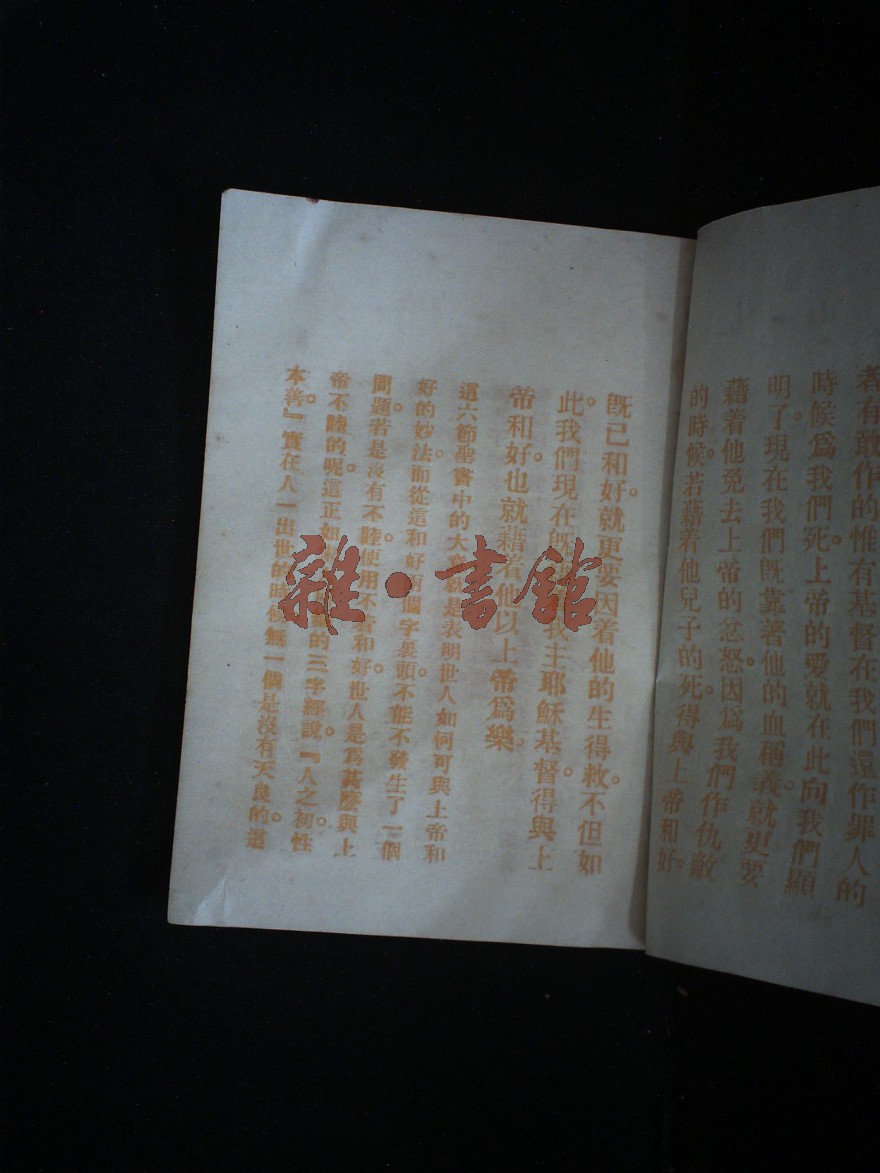 者有敢作的惟有基督在我們還作罪人的
時候。爲我們死。上帝的愛就在此向我們顯
明了現在我們旣靠著他的血稱義。就更要
藉着他免去上帝的忿怒。因爲我們作仇敵
的時候。若藉着他兒子的死。得與上帝和好。
旣已和好。就更要因着他的生得救。不但如
此。我們現在旣 我主耶穌基督。得與上
帝和好。也就藉着他以上帝爲樂。
這六節聖書中的大 就是表明世人如何可與上帝和
好的妙法。而從這和好 個字裏頭。不能不發生了一個
問題。若是沒有不睦。便用不着和好。世人是爲甚麽與上
帝不睦的呢。這正如 的三字經說。『人之初。性
本善。』實在人一出世的時候。無一個是沒有天良的。
雜·書館